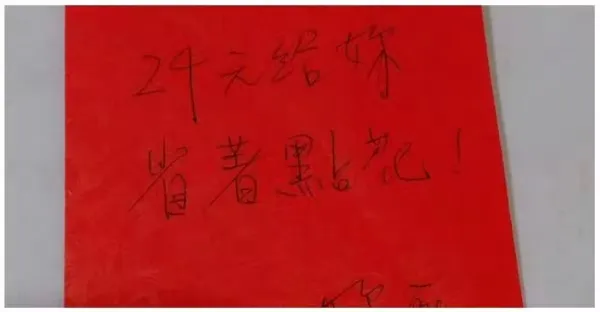 24元給妳
省著點花！